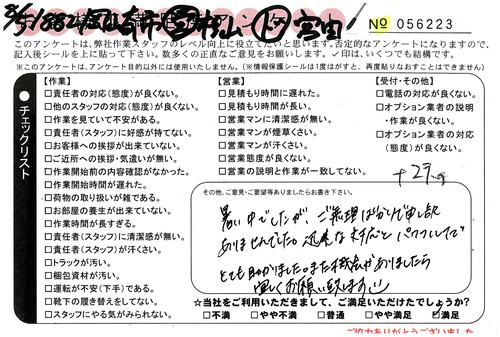 No 056223
このアンケートは、弊社作業スタッフのレベル向上に役立てたいと思います。否定的なアンケートになりますので、
記入後シールを上に貼って下さい。多数の正直なご意見をお願いします。✓印は、いくつでも結構です。
※このアンケートは、アンケート目的以外には使用しません。(※情報保護シールは1度はがすと、再度貼りなおすことはできません)
●チェックリスト
【作業】
□責任者の対応(態度)が良くない。
□他のスタッフの対応(態度)が良くない。
□作業を見ていて不安がある。
□責任者(スタッフ)に好感が持てない。
□お客様への挨拶が出来ていない。
□ご近所への挨拶・気遣いが無い。
□作業開始前の内容確認がなかった。
□作業開始時間が遅れた。
□荷物の取り扱いが雑である。
□お部屋の養生が出来ていない。
□作業時間が長すぎる。
□責任者(スタッフ)に清潔感が無い。
□責任者(スタッフ)が汗くさい。
□トラックが汚い。
□梱包資材が汚い。
□運転が不安(下手)である。
□靴下の履き替えをしてない。
□スタッフにやる気がみられない。
【営業】
□見積もりに遅れた。
□見積もり時間が長い。
□営業マンに清潔感が無い。
□営業マンが煙草くさい。
□営業マンが汗くさい。
□営業態度が良くない。
□営業の説明と作業が一致してない。
【受付・その他】
□電話の対応が良くない。
□オプション業者の説明
・作業が良くない。
□オプション業者の対応
(態度)が良くない。
+27
その他、ご意見・ご要望等ありましたらお書き下さい。
暑い中でしたが、ご無理ばかりで申し訳
ありませんでした。迅速な対応とパワフルで
とても助かりました。また機会がありましたら
宜しくお願い致します
☆当社をご利用いただきまして、ご満足いただけたでしょうか?
□不満 □やや不満 □普通 □やや満足 ☑満足
ご協力ありがとうございました